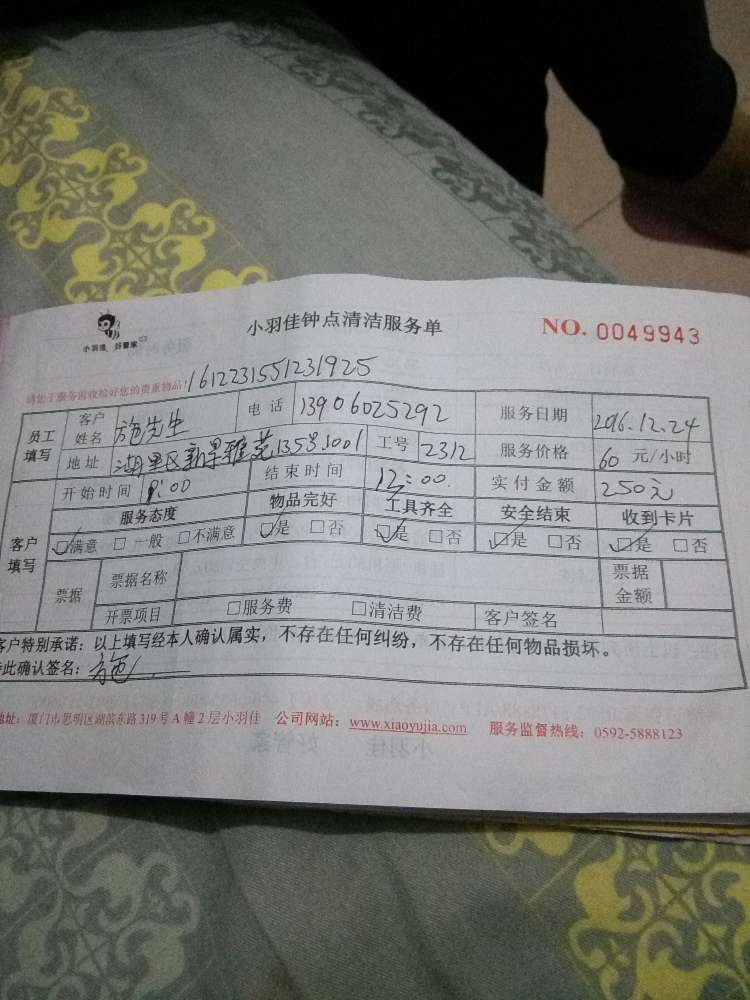 小羽佳 好管家
小羽佳钟点清洁服务单
NO. 0049943
请您于服务前收检好您的贵重物品!
1612231551231925
员工填写 客户姓名 施先生 电话 13906025292 服务日期 2016.12.24
地址 湖里区新景雅苑 工号 2312 服务价格 60 元/小时
开始时间 9:00 结束时间 12:00 实付金额 250元
客户填写 服务态度 物品完好 工具齐全 安全结束 收到卡片
☑满意 □一般 □不满意 ☑是 □否 ☑是 □否 ☑是 □否 ☑是 □否
票据 票据名称 票据金额
开票项目 □服务费 □清洁费 客户签名
客户特别承诺：以上填写经本人确认属实，不存在任何纠纷，不存在任何物品损坏。
此确认签名：施
地址：厦门市思明区湖滨东路319号A幢2层小羽佳 公司网站：www.xiaoyujia.com 服务监督热线：0592-5888123